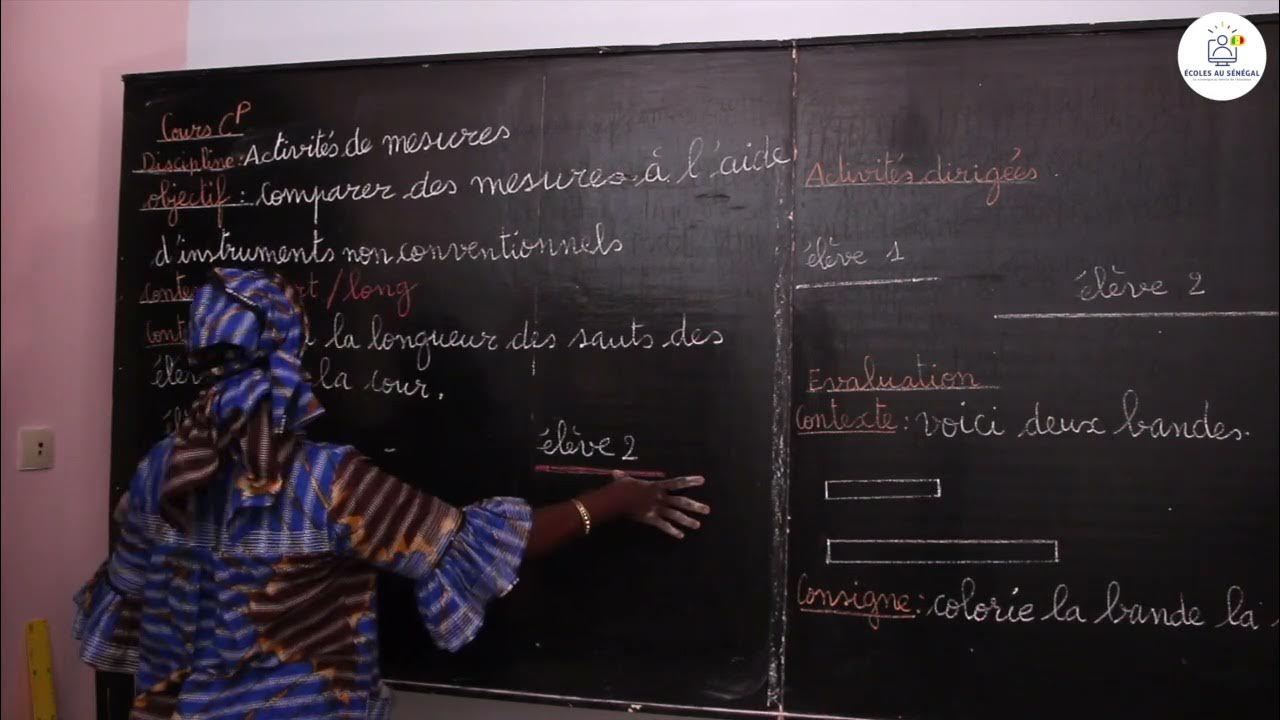 Cours CP
Discipline: Activités de mesures
objectif: comparer des mesures à l'aide
d'instruments non conventionnels
/long
la longueur des sauts des
la cour.
élève 2
Activités dirigées
élève 1
élève 2
Evaluation
Contexte: voici deux bandes.
Consigne: colorie la bande la
ÉCOLES AU SÉNÉGAL